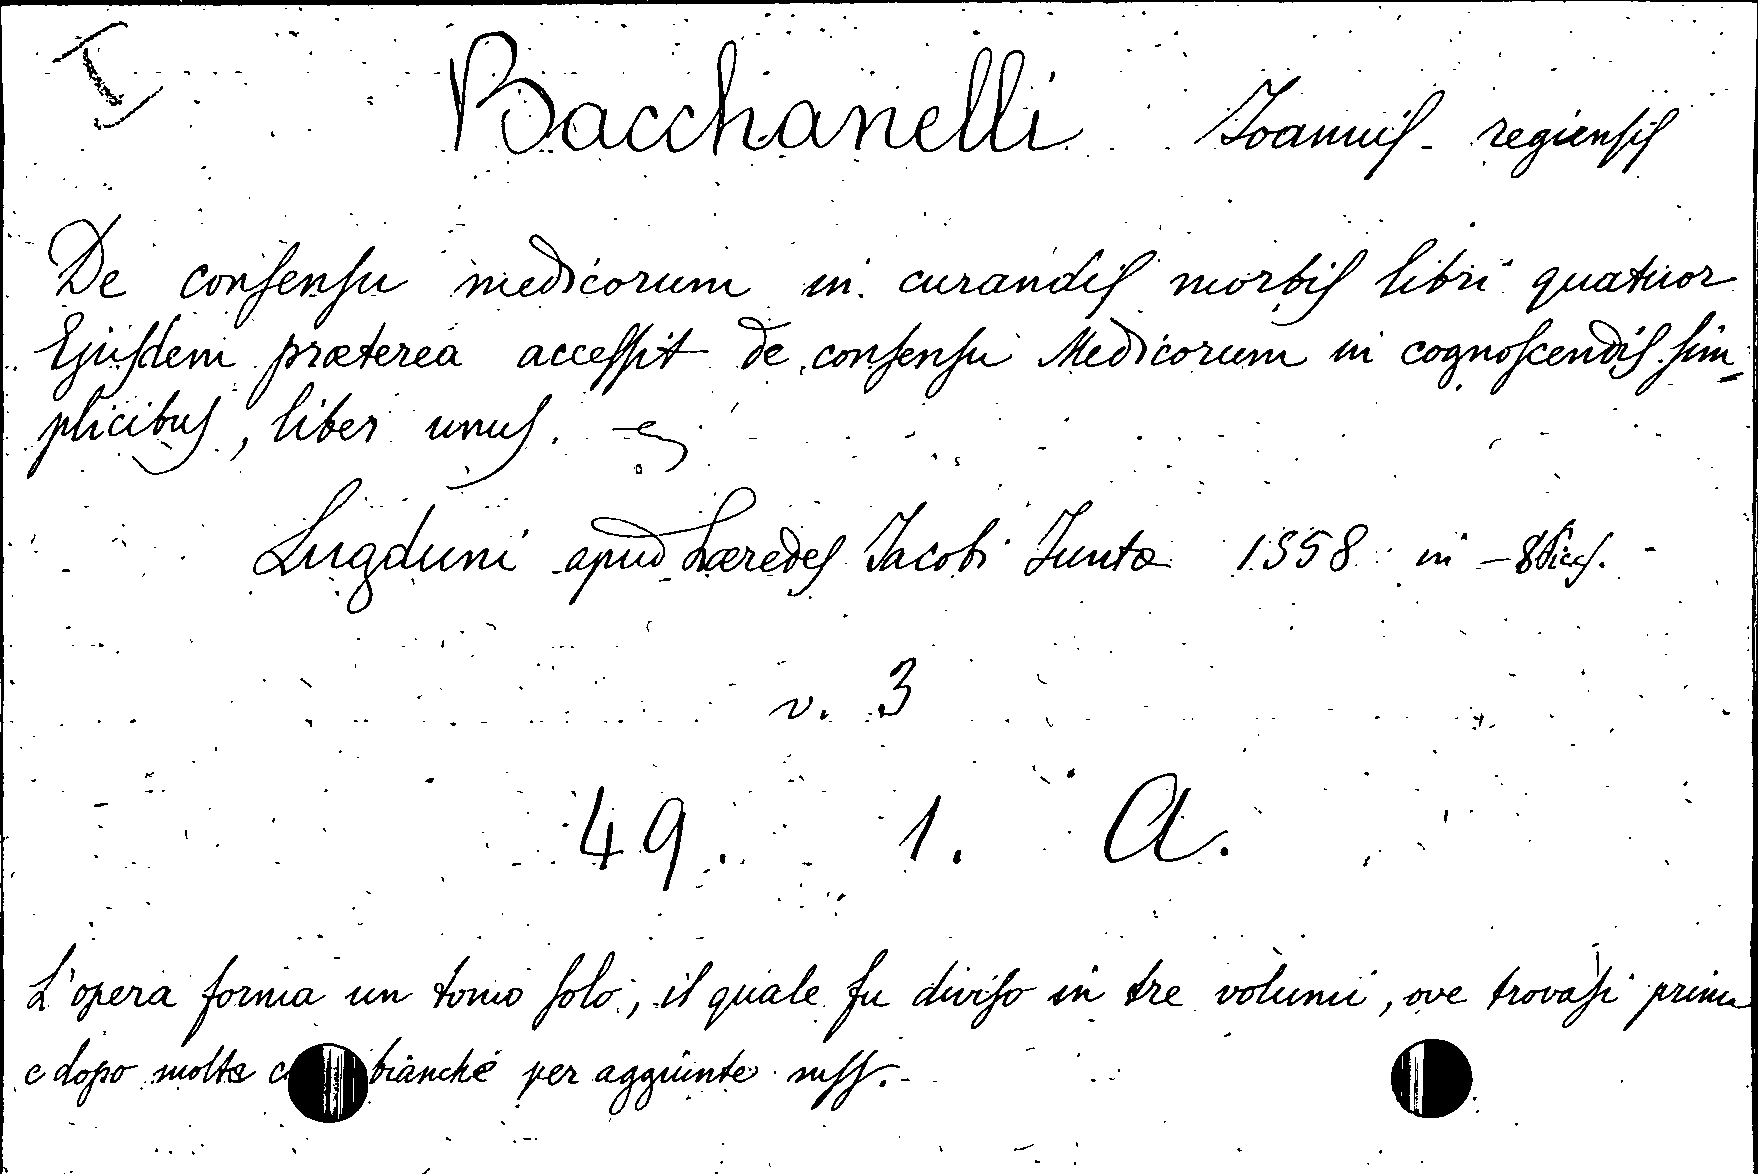 I
Bacchanelli Joannis - regiensis
De consensu medicorum in curandis morbis libri quatuor
Ejusdem præterea accessit de consensu Medicorum in cognoscendis sim-
plicibus, liber unus.
Lugduni apud hæredes Jacobi Juntæ 1558 in -8
v. 3
49. 1. A.
L'opera forma un tomo solo, il quale fu diviso in tre volumi, ove trovasi prima
e dopo molte bianche per aggiunte mss.